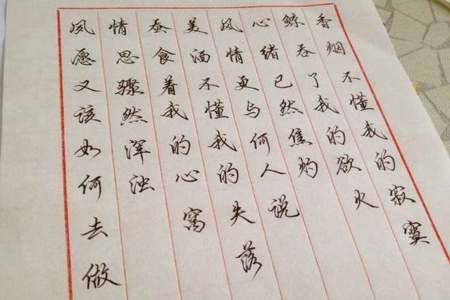 香烟不懂我的寂寞
鲸吞了我的欲火
心绪已然焦灼
风情更与何人说
美酒不懂我的失落
蚕食着我的心窝
情思骤然浑浊
夙愿又该如何去做